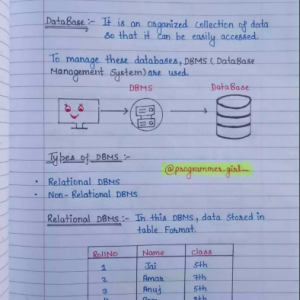 DataBase :- It is an organized collection of data
so that it can be easily accessed.
To manage these databases, DBMS (DataBase
Management System) are used.
DBMS DataBase
Types of DBMS :-
@programmer.girl__
• Relational DBMS
• Non-Relational DBMS
Relational DBMS :- In this DBMS, data stored in
table Format.
RollNO Name Class
1 Jai 5th
2 Amar 7th
3 Anuj 5th